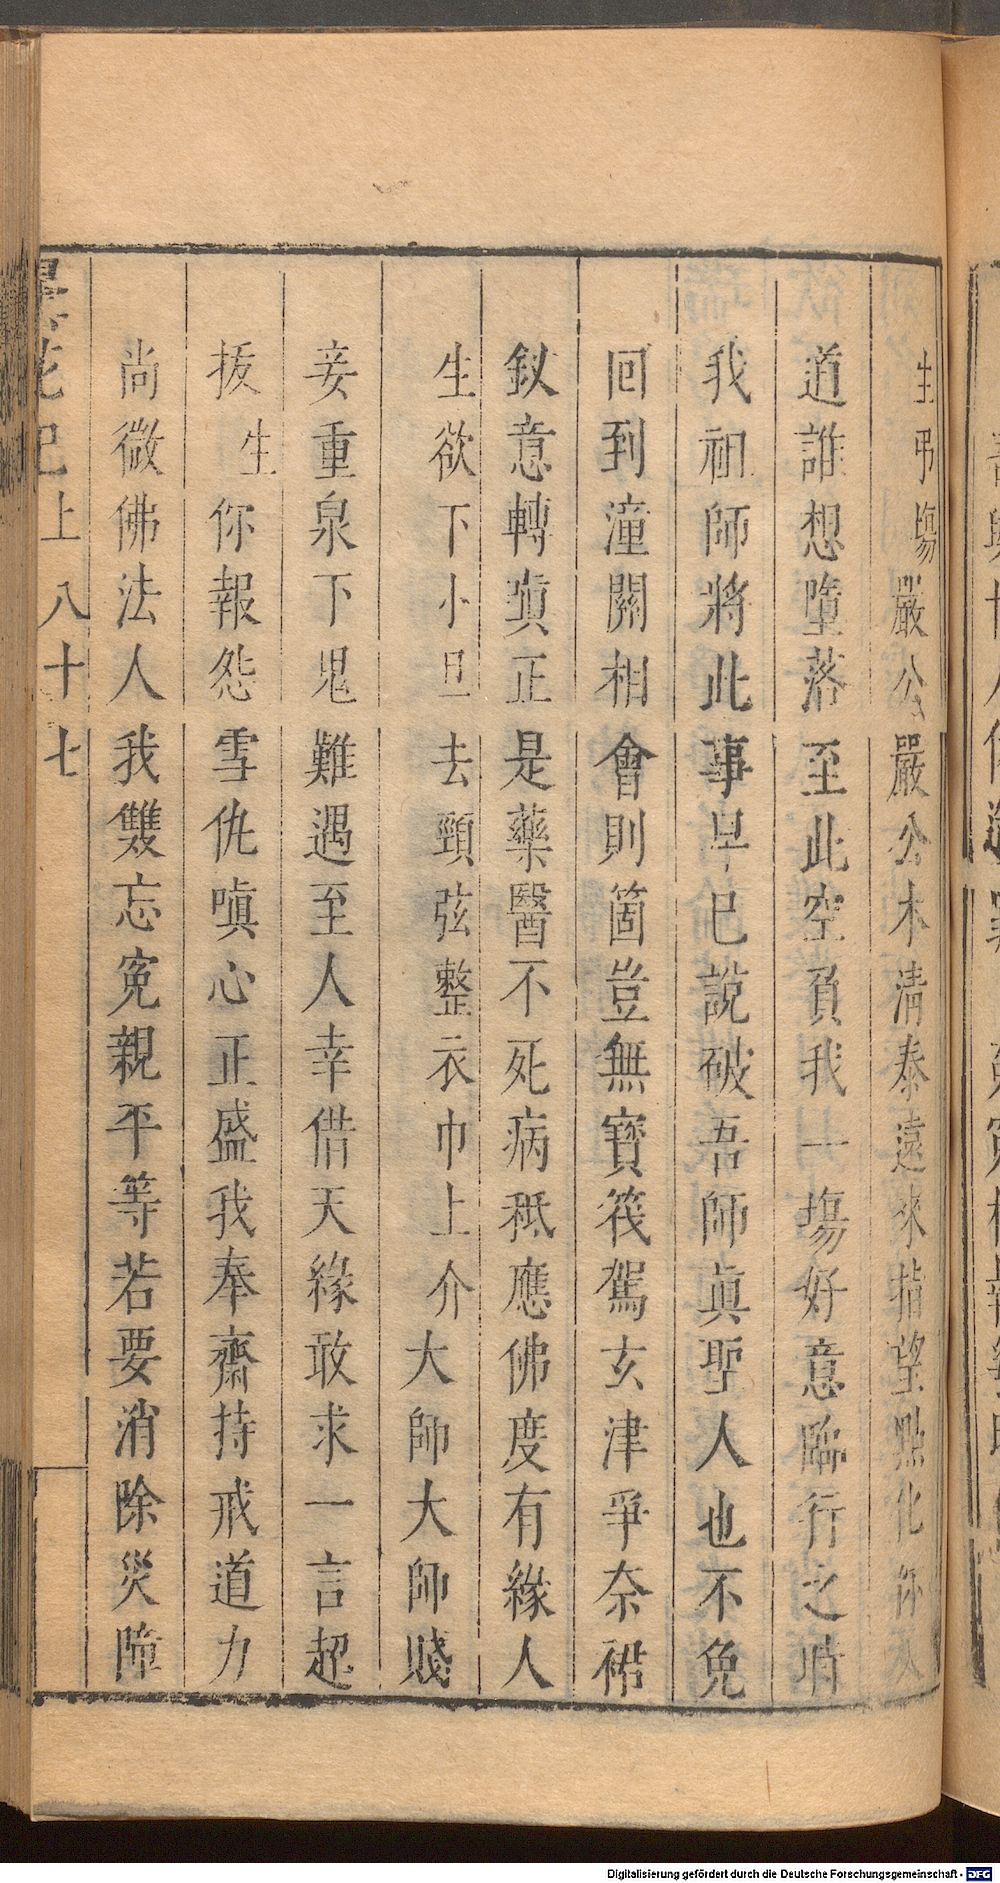 生弔場嚴公嚴公木清泰遠來指望點化你入
道誰想墮落至此空負我一塲好意臨行之時
我祖師將此事早已說破吾師眞聖人也不免
回到潼關相會則箇豈無寶筏駕玄津爭奈裙
釵意轉眞正是藥醫不死病秪應佛度有緣人
生欲下小旦去頸弦整衣巾上介大師大師賤
妾重泉下鬼難遇至人幸借天緣敢求一言超
拔生你報怨雪仇嗔心正盛我奉齋持戒道力
尚微佛法人我雙忘寃親平等若要消除災障
曇花記上八十七
Digitalisierung gefördert durch die Deutsche Forschungsgemeinschaft - DFG